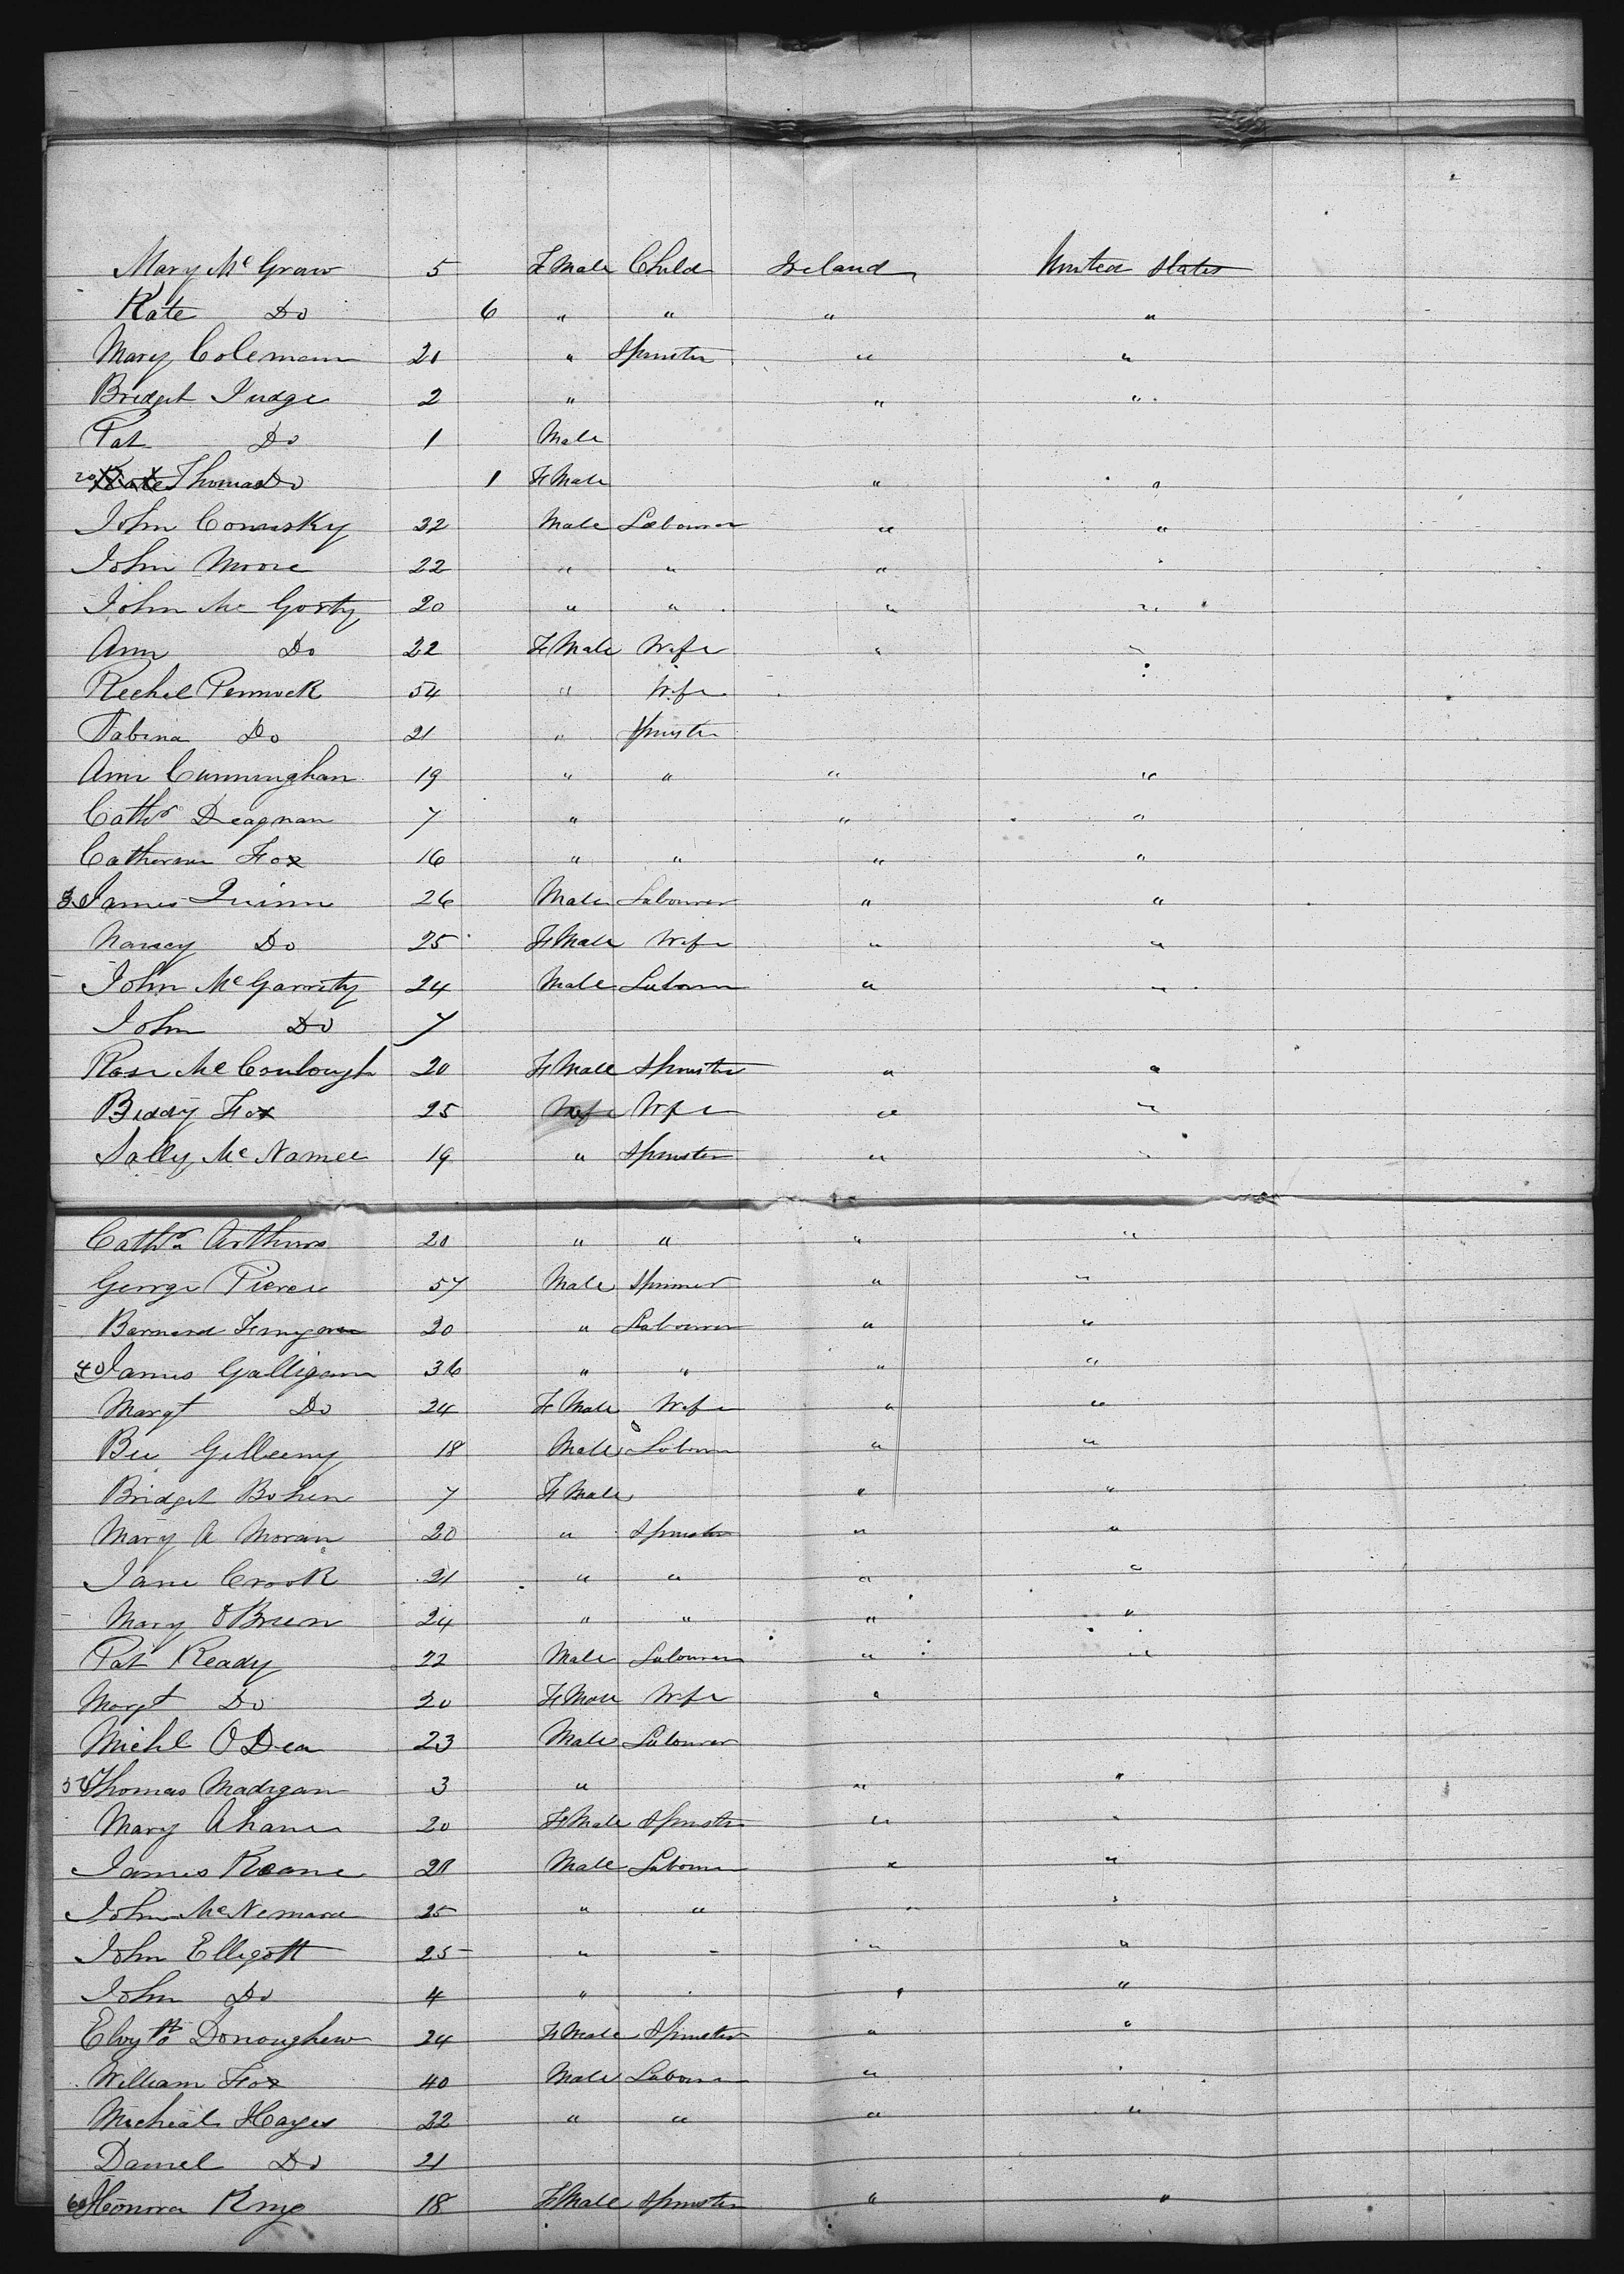 Mary Mc Graw 5 F Male Child Ireland United States
Kate Do 6 " " " "
Mary Coleman 20 " Spinster " "
Bridget Judge 2 " " "
Pat Do 1 Male
20 Kate Thomas Do 1 F Male " "
John Comusky 22 Male Labourer " "
John Moore 22 " " " "
John Mc Gorty 20 " " " "
Ann Do 22 F Male Wife " "
Rechel Pennock 54 " Wife
Tabina Do 21 " Spinster
Ann Cunninghan 19 " " " "
Cathr Deagnan 7 " " "
Catherine Fox 16 " " " "
3 James Quinn 26 Male Labourer " "
Nancy Do 25 F Male Wife " "
John Mc Garrity 24 Male Labourer " "
John Do 7
Rose Mc Coulough 20 F Male Spinster " "
Biddy Fox 25 Wife Wife " "
Sally Mc Namee 19 " Spinster " "
Cathr Arthurs 20 " " " "
George Pierce 57 Male Spinner " "
Bernard 20 " Labourer " "
40 James Galligan 36 " " " "
Margt Do 24 F Male Wife " "
Gilleeny 18 Male Labourer " "
Bridget Bohen 7 F Male " "
Mary A Moran 20 " Spinster " "
Jane Crook 21 " " " "
Mary O Brien 24 " " " "
Pat Ready 22 Male Labourer " "
Margt Do 20 F Male Wife "
Michl O Dea 23 Male Labourer
50 Thomas Madigan 3 " " "
Mary Ahane 20 F Male Spinster " "
James Roane 20 Male Labourer " "
John Mc Nemara 25 " " " "
John Elligott 25 " " " "
John Do 4 " " " "
Donoughew 24 F Male Spinster " "
William Fox 40 Male Labourer " "
Micheal Hayes 22 " " " "
Daniel Do 21
60 Honora King 18 F Male Spinster " "